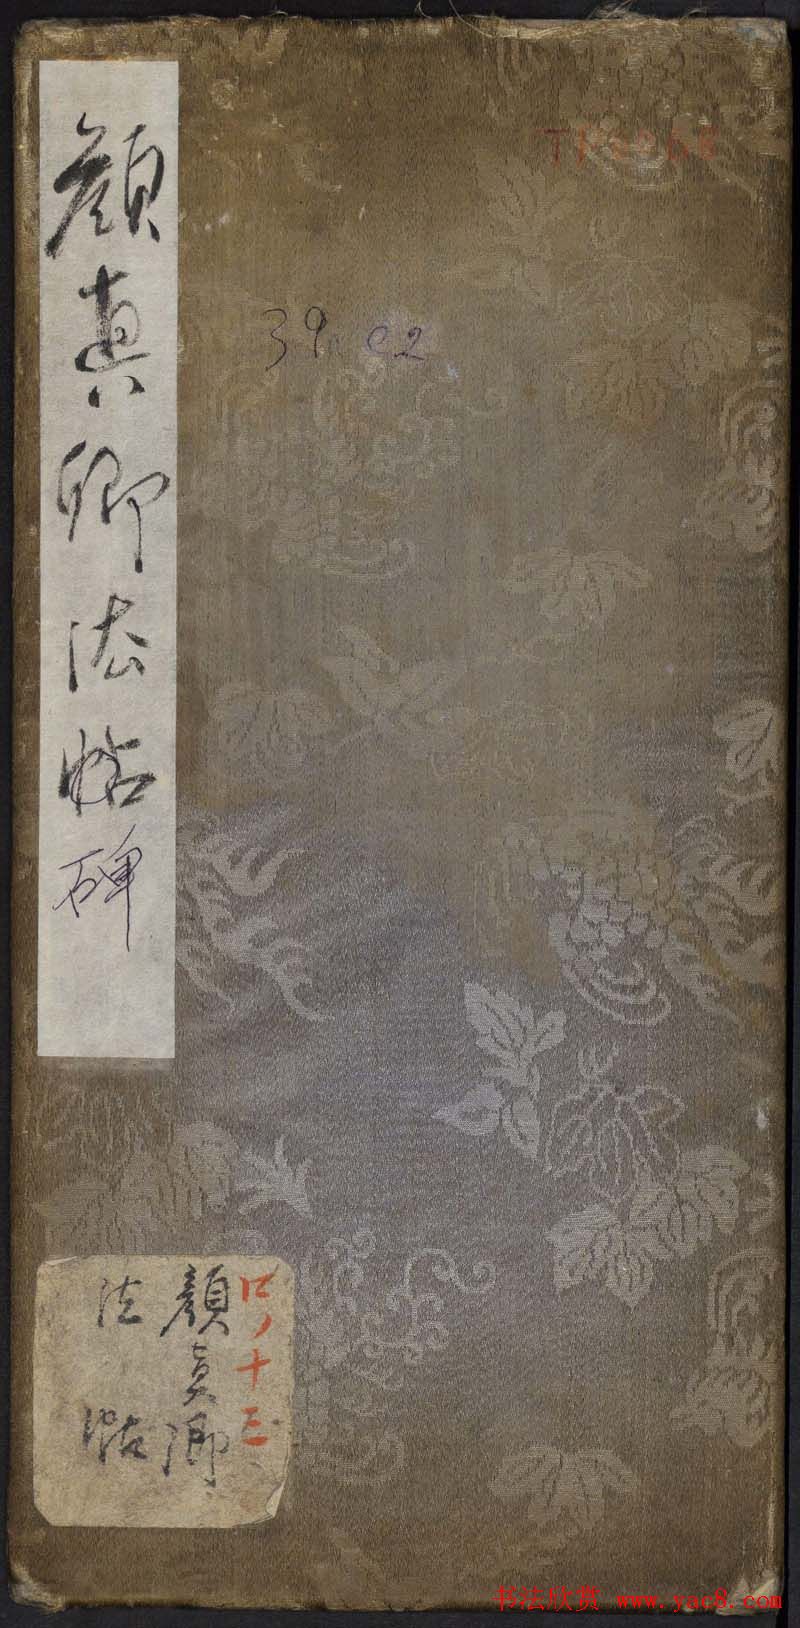 顔真卿法帖碑
39.e2
ロノ十三
顔真卿
法帖
书法欣赏 www.yac8.com